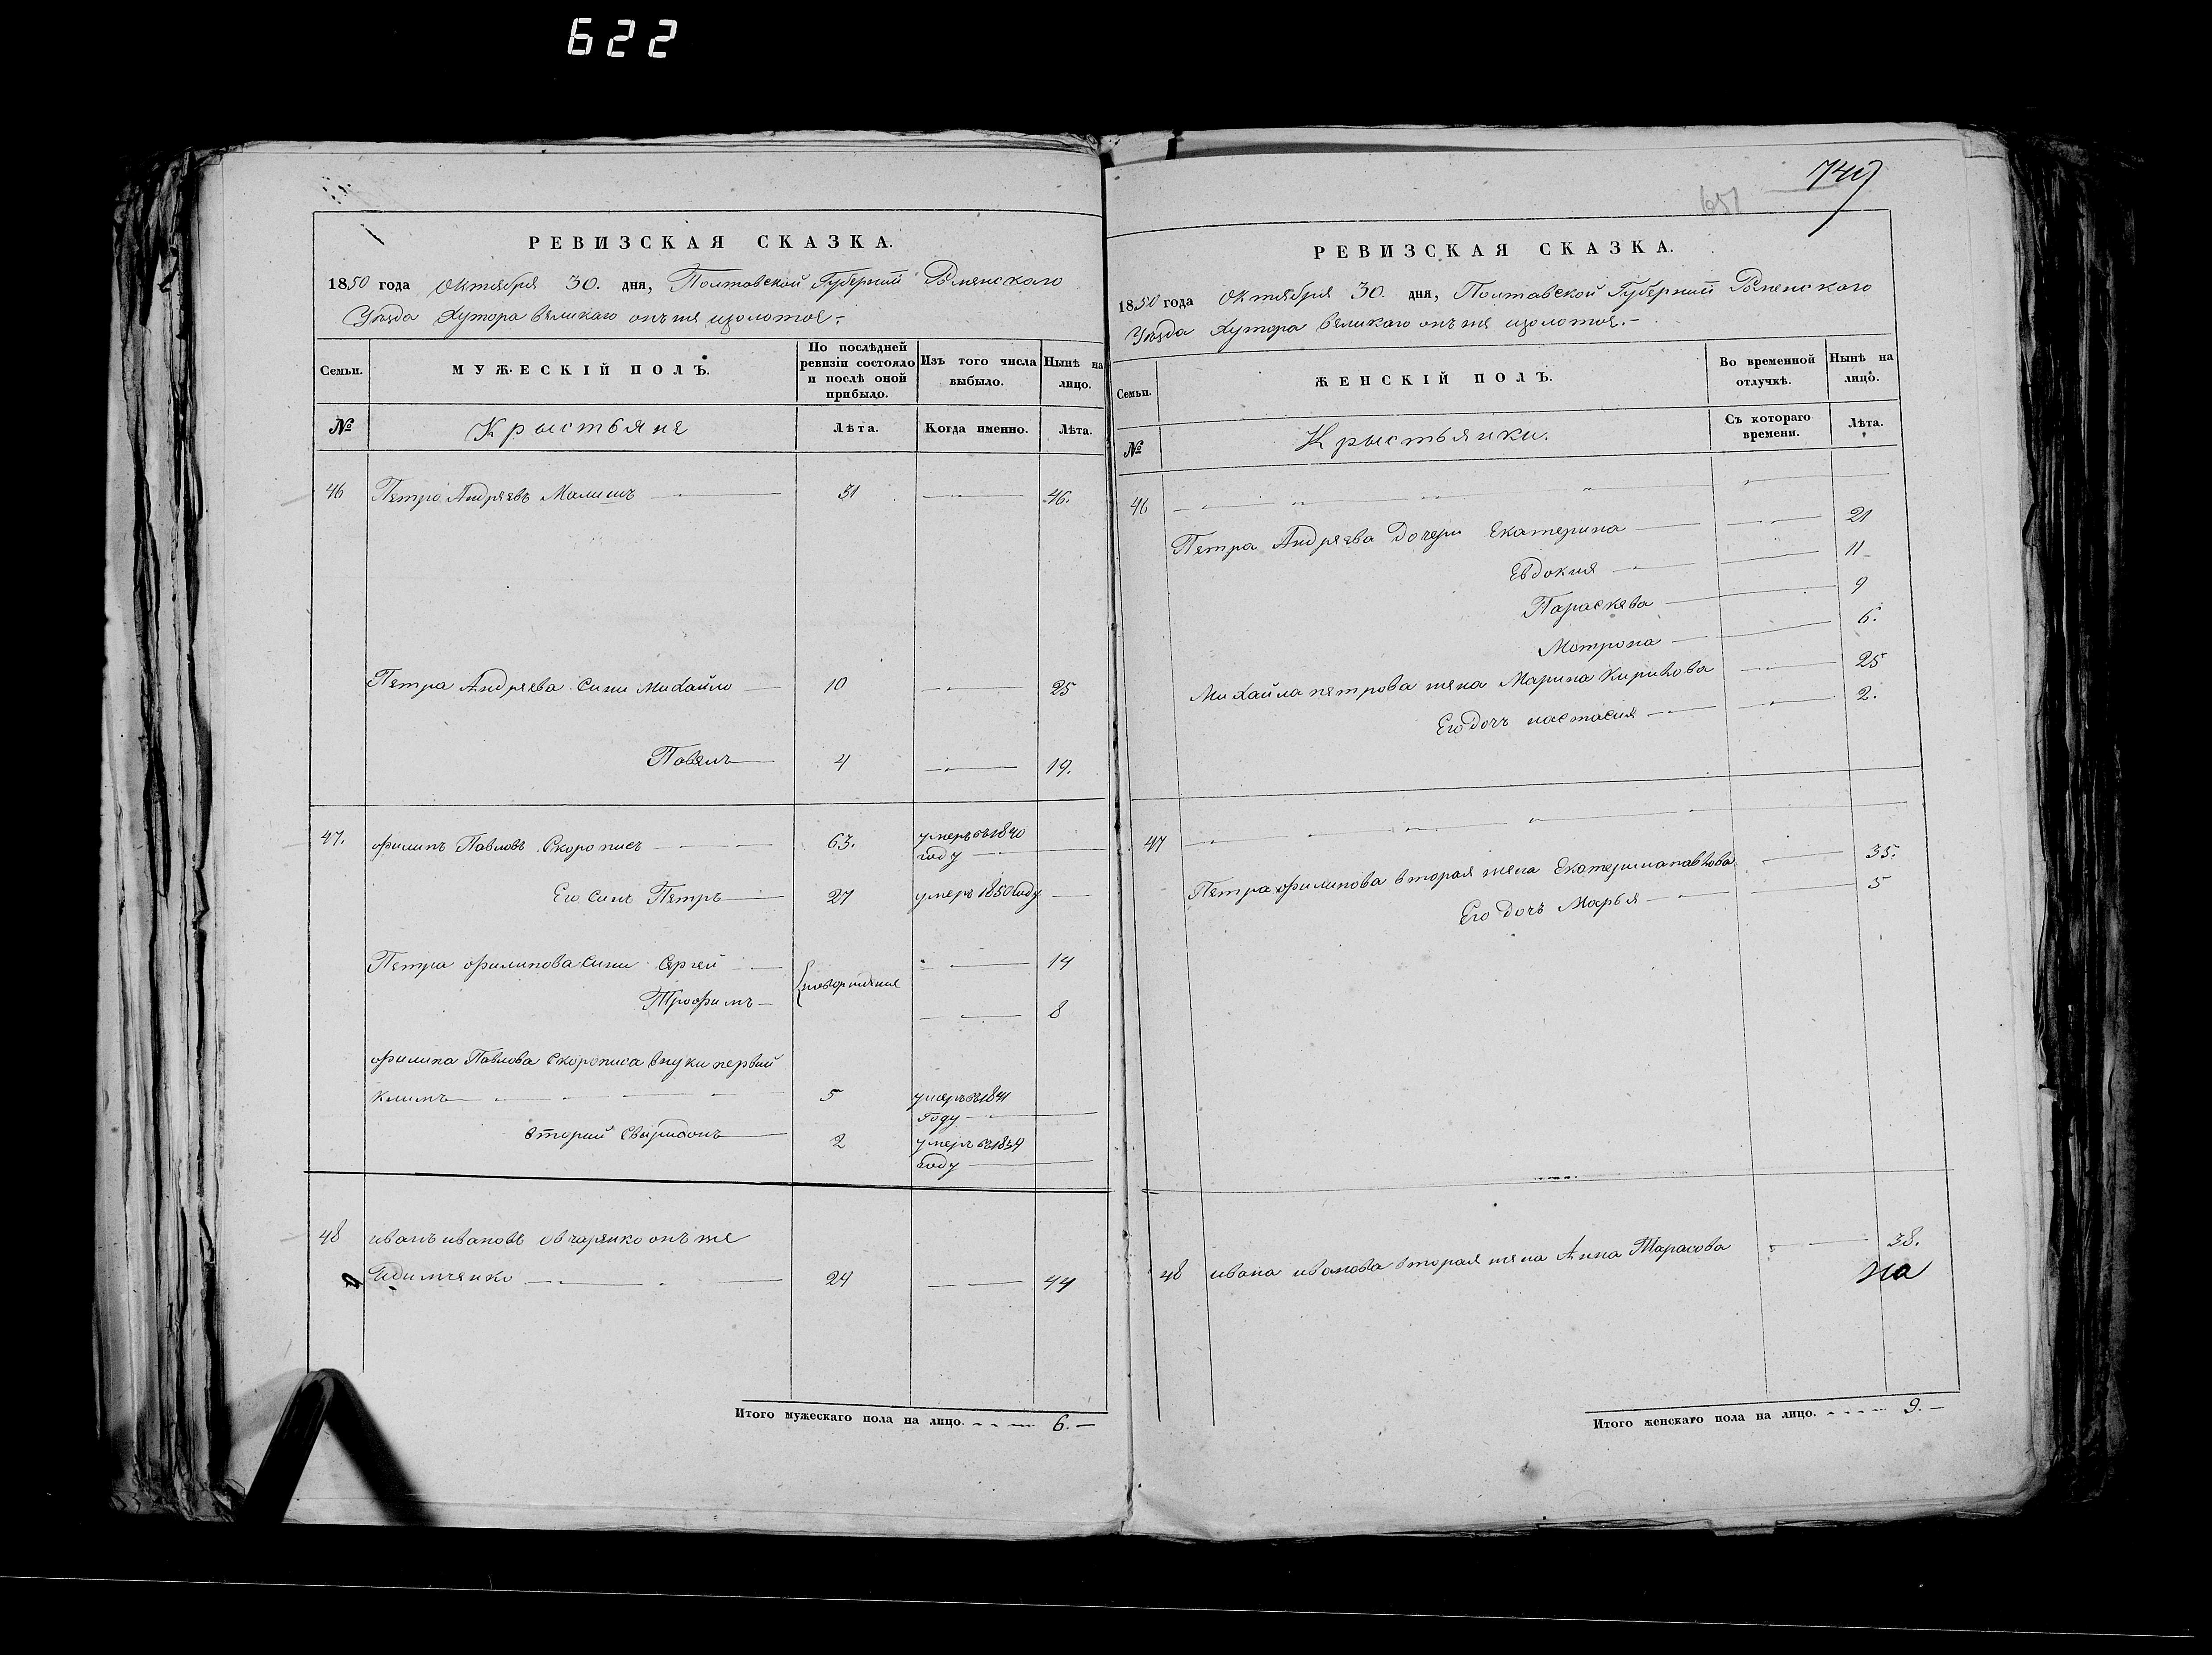 622
РЕВИЗСКАЯ СКАЗКА.
1850 года Октября 30. дня, Полтавской Губернии Роменского
Уезда Хутора великаго онъ же изолотое.-
Семьи. МУЖЕСКІЙ ПОЛЪ. По послѣдней ревизіи состояло и послѣ оной прибыло. Изъ того числа выбыло. Нынѣ на лицо.
№ Крыстьяне Лѣта. Когда именно. Лѣта.
46 Петро Андреевъ Малишъ 31 46.
Петра Андреева сини Михайло 10 25
Павелъ 4 19.
47. филипъ Павловъ Скорописъ 63. умеръ въ 1840 году
Его синъ Петръ 27 умеръ 1850 году
Петра филипова сини Сергей новорождение 14
Трофимъ 8
филипа Павлова Скорописа внуки первий
Климъ 5 умеръ въ 1841 году
вторий Свиридонъ 2 умеръ въ 1834 году
48 иванъ ивановъ овчаренко онъ же
24 44
Итого мужескаго пола на лицо. 6.-
749
651
РЕВИЗСКАЯ СКАЗКА.
1850 года Октября 30. дня, Полтавской Губернии Роменского
Уезда Хутора великаго онъ же изолотое.-
Семьи. ЖЕНСКІЙ ПОЛЪ. Во временной отлучкѣ. Нынѣ на лицо.
№ Крыстьянки. Съ котораго времени. Лѣта.
46
Петра Андреева дочери Екатерина 21
Евдокия 11
Параскева 9
Мотрона 6.
Михайла петрова жена Марина Кирилова 25
Его дочъ настасия 2.
47
Петра филипова вторая жена Екатерина павлова 35.
Его дочъ Марья 5
48 ивана иванова вторая жена Анна Тарасова 38.
на
Итого женскаго пола на лицо. 9.-